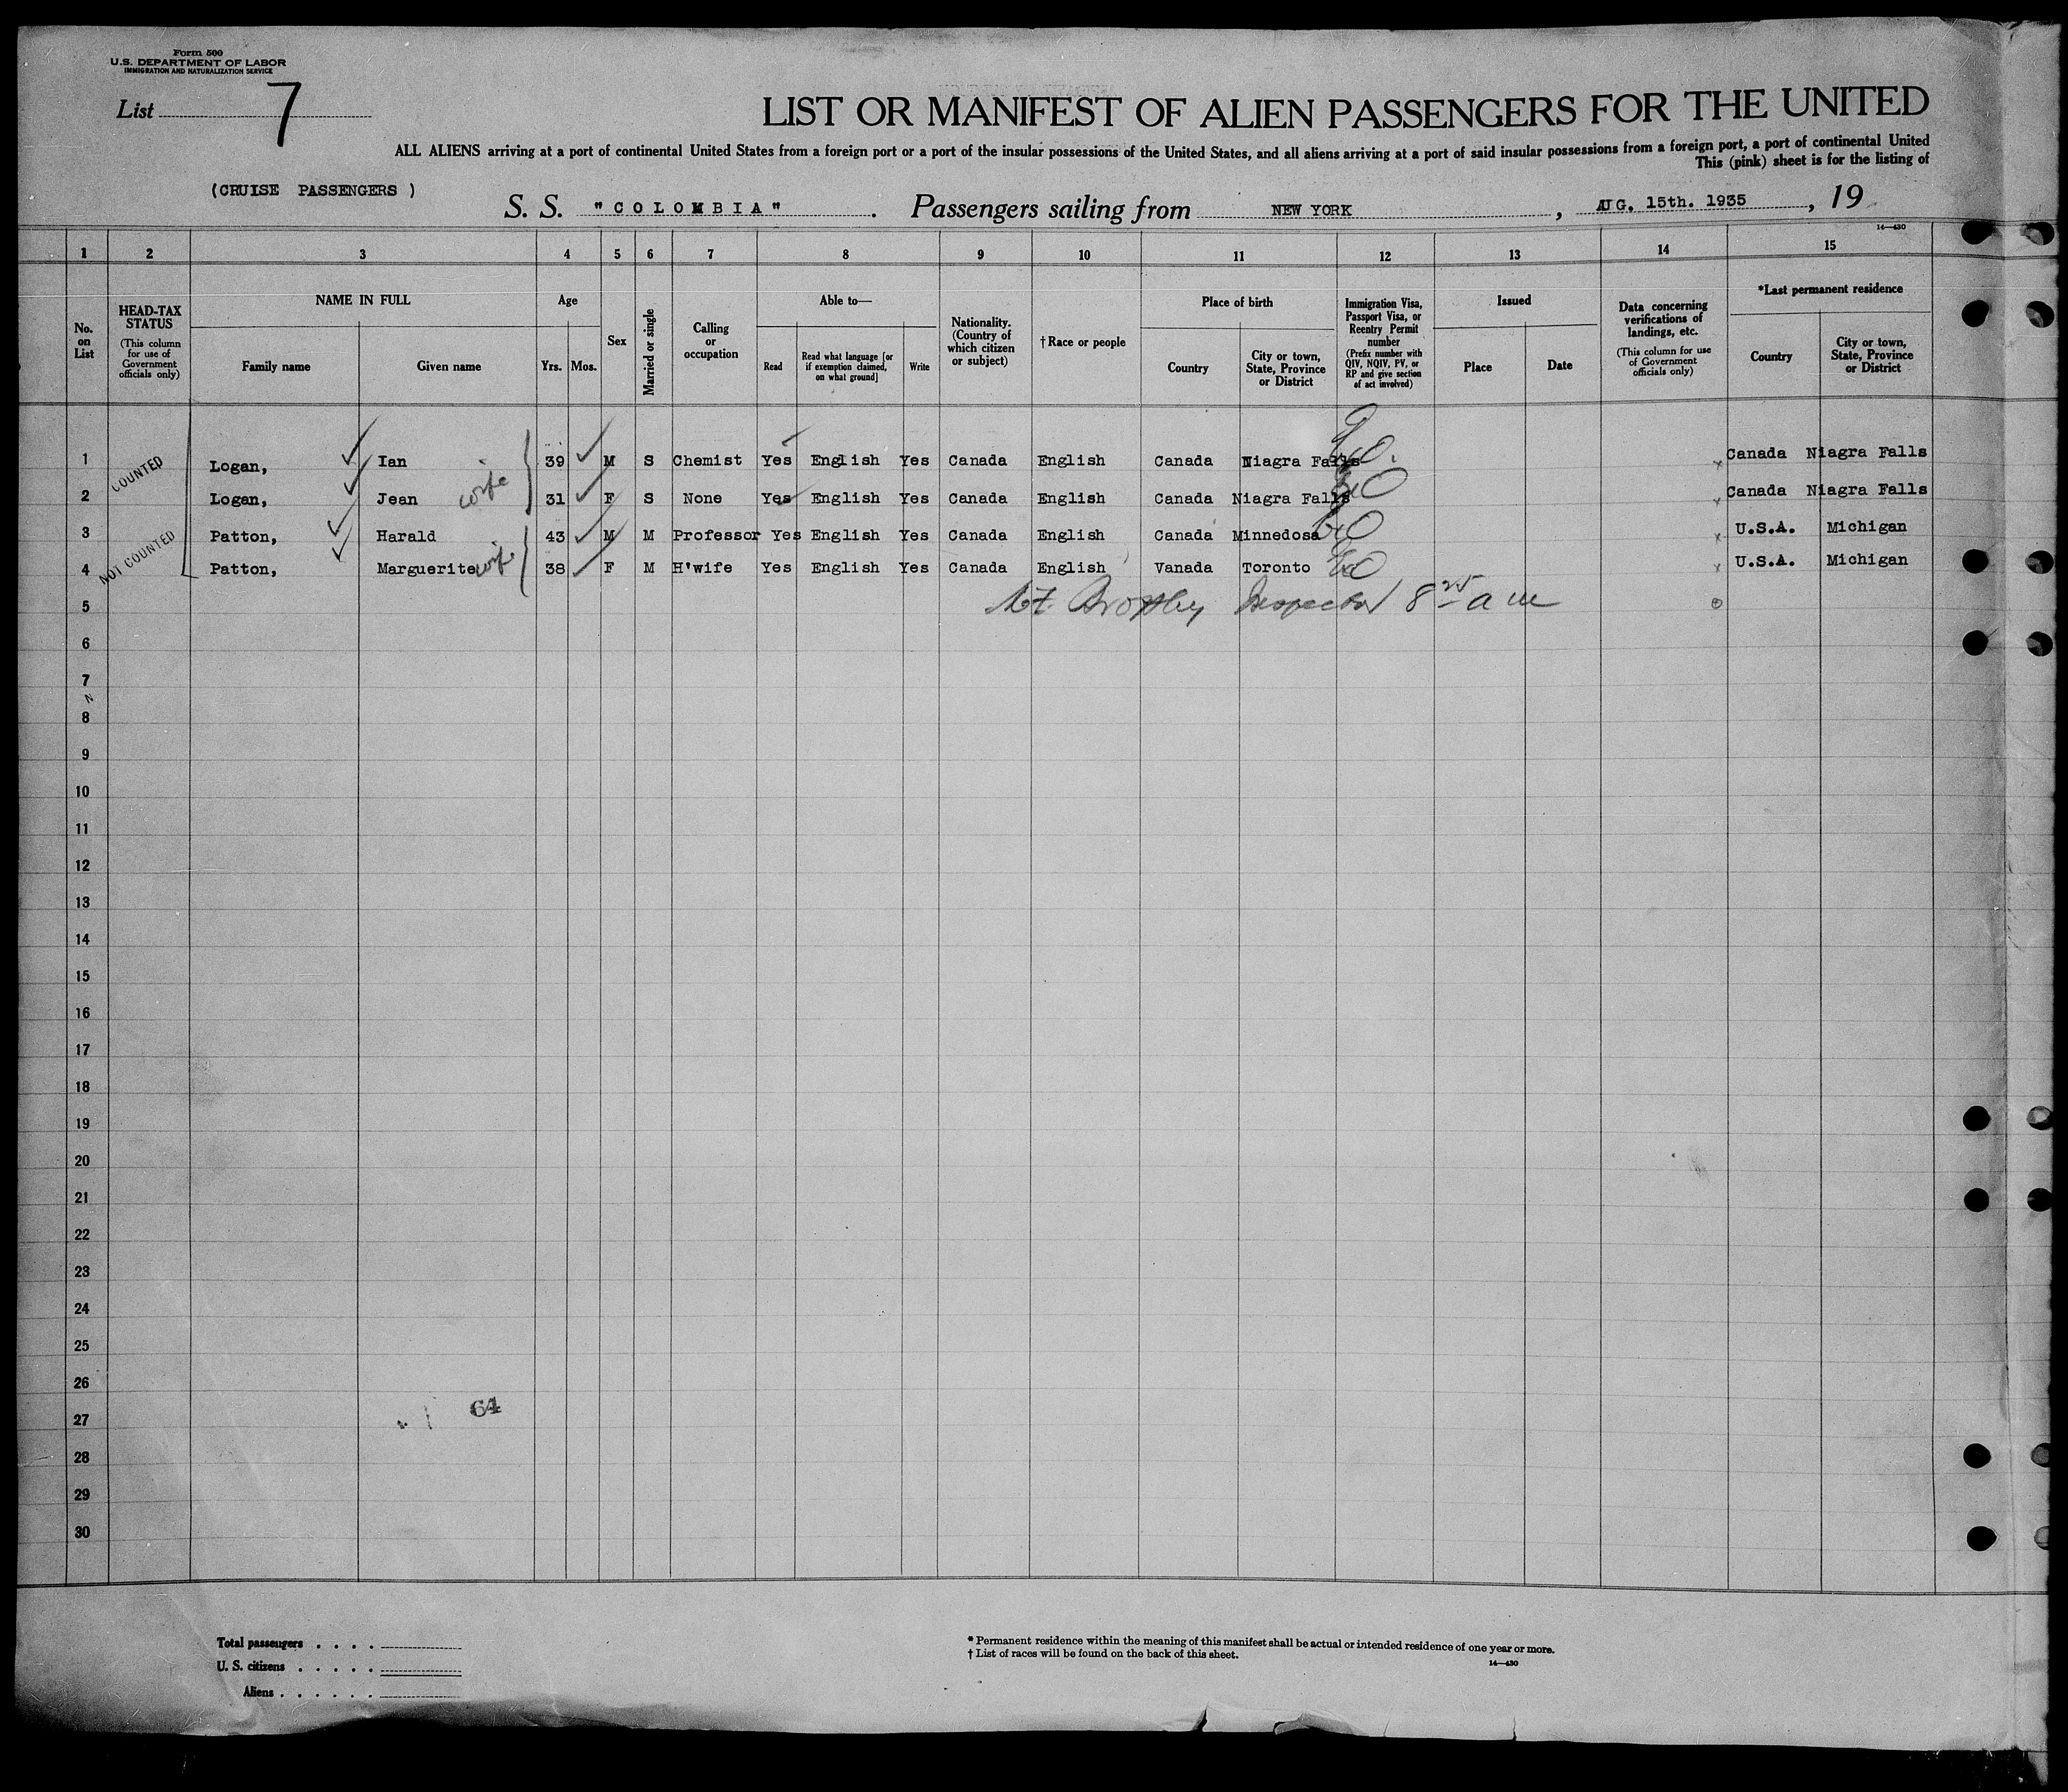 Form 500
U.S. DEPARTMENT OF LABOR
IMMIGRATION AND NATURALIZATION SERVICE
List 7
LIST OR MANIFEST OF ALIEN PASSENGERS FOR THE UNITED
ALL ALIENS arriving at a port of continental United States from a foreign port or a port of the insular possessions of the United States, and all aliens arriving at a port of said insular possessions from a foreign port, a port of continental United
This (pink) sheet is for the listing of
(CRUISE PASSENGERS )
S. S. "COLOMBIA". Passengers sailing from NEW YORK, AUG. 15th. 1935, 19
14—430
1 2 3 4 5 6 7 8 9 10 11 12 13 14 15
No. on List
HEAD-TAX STATUS (This column for use of Government officials only)
NAME IN FULL
Family name Given name
Age
Yrs. Mos.
Sex
Married or single
Calling or occupation
Able to—
Read Read what language [or if exemption claimed, on what ground] Write
Nationality. (Country of which citizen or subject)
†Race or people
Place of birth
Country City or town, State, Province or District
Immigration Visa, Passport Visa, or Reentry Permit number (Prefix number with QIV, NQIV, PV, or RP and give section of act involved)
Issued
Place Date
Data concerning verifications of landings, etc. (This column for use of Government officials only)
*Last permanent residence
Country City or town, State, Province or District
COUNTED
1 Logan, Ian 39 M S Chemist Yes English Yes Canada English Canada Niagra Falls Canada Niagra Falls
2 Logan, Jean wife 31 F S None Yes English Yes Canada English Canada Niagra Falls Canada Niagra Falls
NOT COUNTED
3 Patton, Harald 43 M M Professor Yes English Yes Canada English Canada Minnedosa U.S.A. Michigan
4 Patton, Marguerite wife 38 F M H'wife Yes English Yes Canada English Vanada Toronto U.S.A. Michigan
5 Inspector 8 25 am
6
7
8
9
10
11
12
13
14
15
16
17
18
19
20
21
22
23
24
25
26
27 64
28
29
30
Total passengers . . . .
U. S. citizens . . . . .
Aliens . . . . . .
* Permanent residence within the meaning of this manifest shall be actual or intended residence of one year or more.
† List of races will be found on the back of this sheet.
14—430